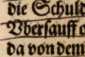 die Schuld
Vbersauff o
da von dem